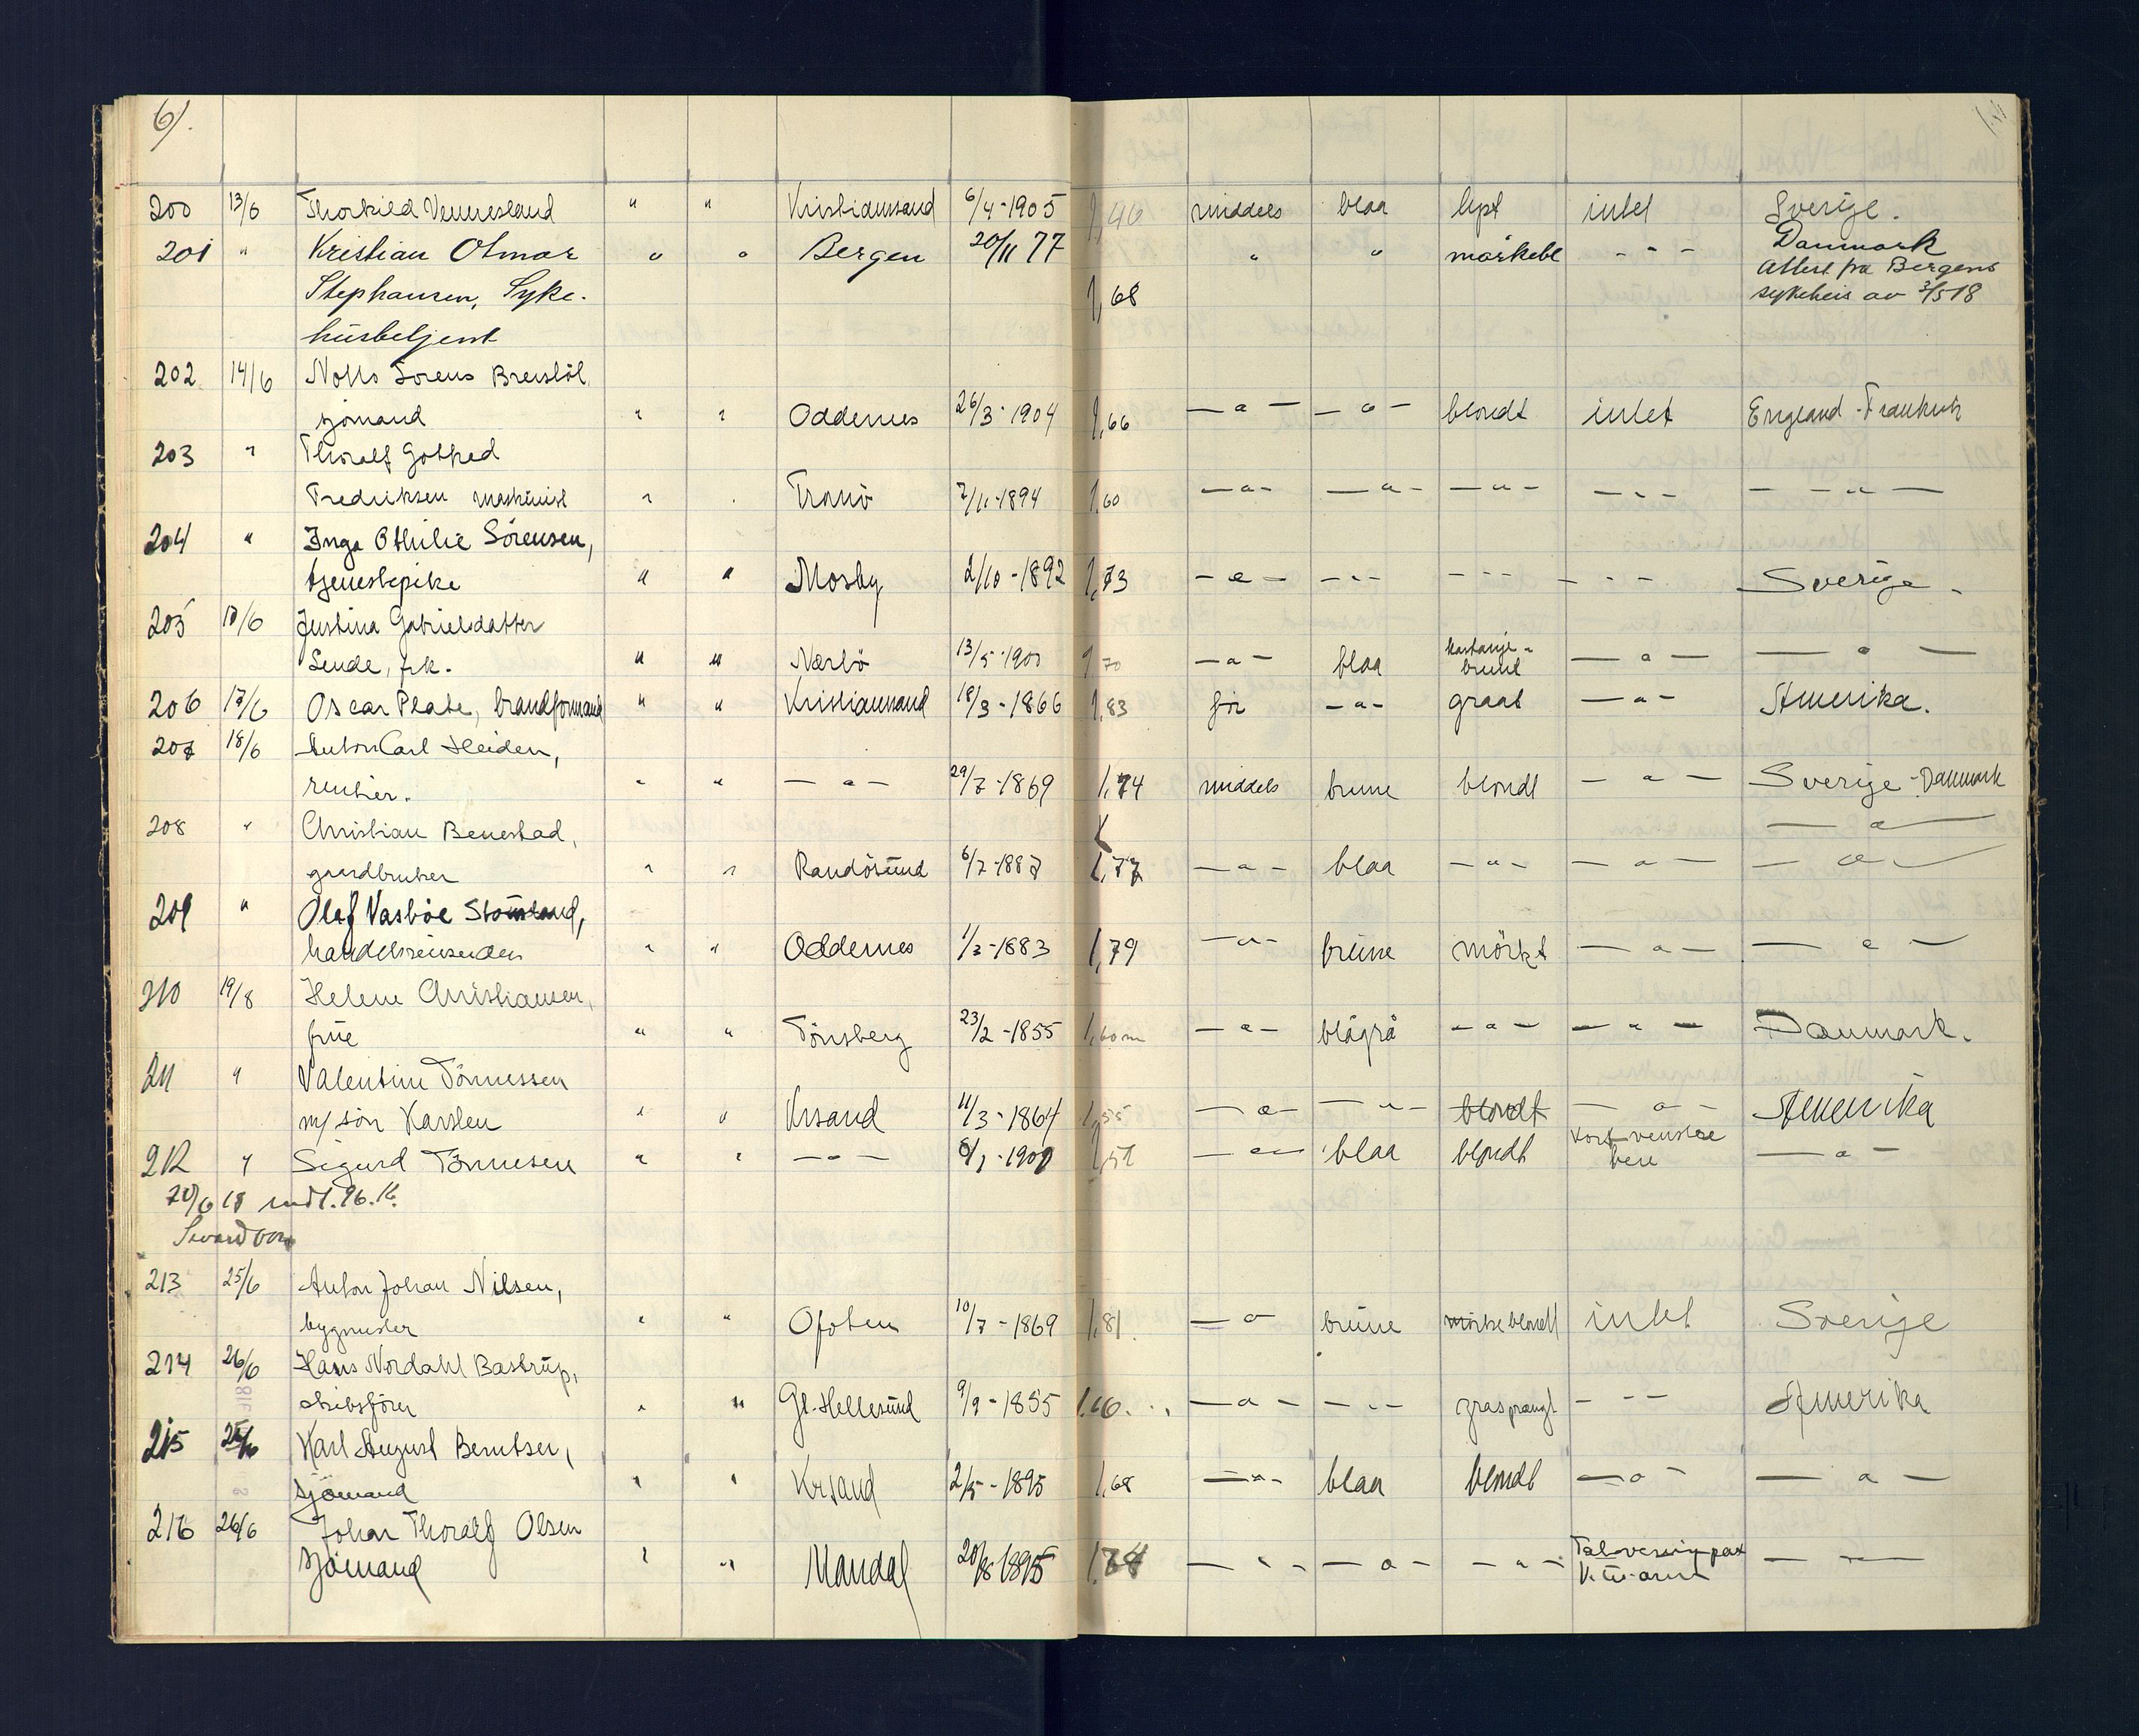 6/.
200 13/6 Thorkild Vennesland " " Kristiansand 6/4-1905 1,46 middels blaa lyst intet Sverige.
201 " Kristian Otmar " " Bergen 20/11 77 " " mörkebl - " - Danmark
Stephansen, Syke- 1,68 Attest fra Bergens
husbetjent sykehus av 3/5 18
202 14/6 Notto Sorens Breistöl,
sjömand " " Oddernes 26/3-1904 1,66 — " — — " — blondt intet England - Frankrik
203 " Thoralf Gotfred
Fredriksen maskinist " " Tromö 2/11-1894 1,60 — " — — " — — " — — " — — " —
204 " Inga Othilie Sörensen,
tjenestepike " " Mosby 2/10-1892 1,73 — " — — " — — " — — " — Sverige.
205 17/6 Justina Gabrielsdatter
Lende, frk. " " Nærbö 13/5-1900 1,70 — " — blaa kastanje-brunt — " — — " —
206 17/6 Oscar Plate, brandformand " " Kristiansand 18/3-1866 1,83 før — " — graat — " — Amerika.
207 18/6 Anton Carl Heiden,
rentier. " " — " — 29/7-1869 1,74 middels brune blondt — " — Sverige - Danmark
208 " Christian Benestad, — " —
gaardbruker " " Randösund 6/7-1887 1,77 — " — blaa — " — — " — — " —
209 " Olaf Vasböe
handelsreisende " " Oddernes 1/3-1883 1,79 — " — brune mörkt — " — — " —
210 19/8 Helene Christiansen,
frue " " Tönsberg 23/2-1855 1,60 m — " — blågrå — " — — " — Danmark.
211 " Valentine Tönnessen
m/ sön Karsten " " Krsand 11/3-1864 1,55 — " — — " — blondt — " — Amerika
212 " Sigurd Tönnesen " " — " — 1,51 — " — blaa blondt Kort venstre ben — " —
20/6 18
213 25/6 Anton Johan Nilsen,
bygmester " " Ofoten 10/7-1869 1,81 — " — brune mörkeblondt intet Sverige
214 26/6 Hans Nordahl Bastrup,
skibsförer " " Gl. Hellesund 9/9-1855 1,66 — " — — " — graasprængt — " — Amerika
215 Karl August Berntsen,
sjömand " " Krsand 2/5-1895 1,68 — " — blaa blondt — " — — " —
216 26/6 Johan Thoralf Olsen
sjömand " " Mandal 1,74 — " — — " — — " — Tatovering paa — " —